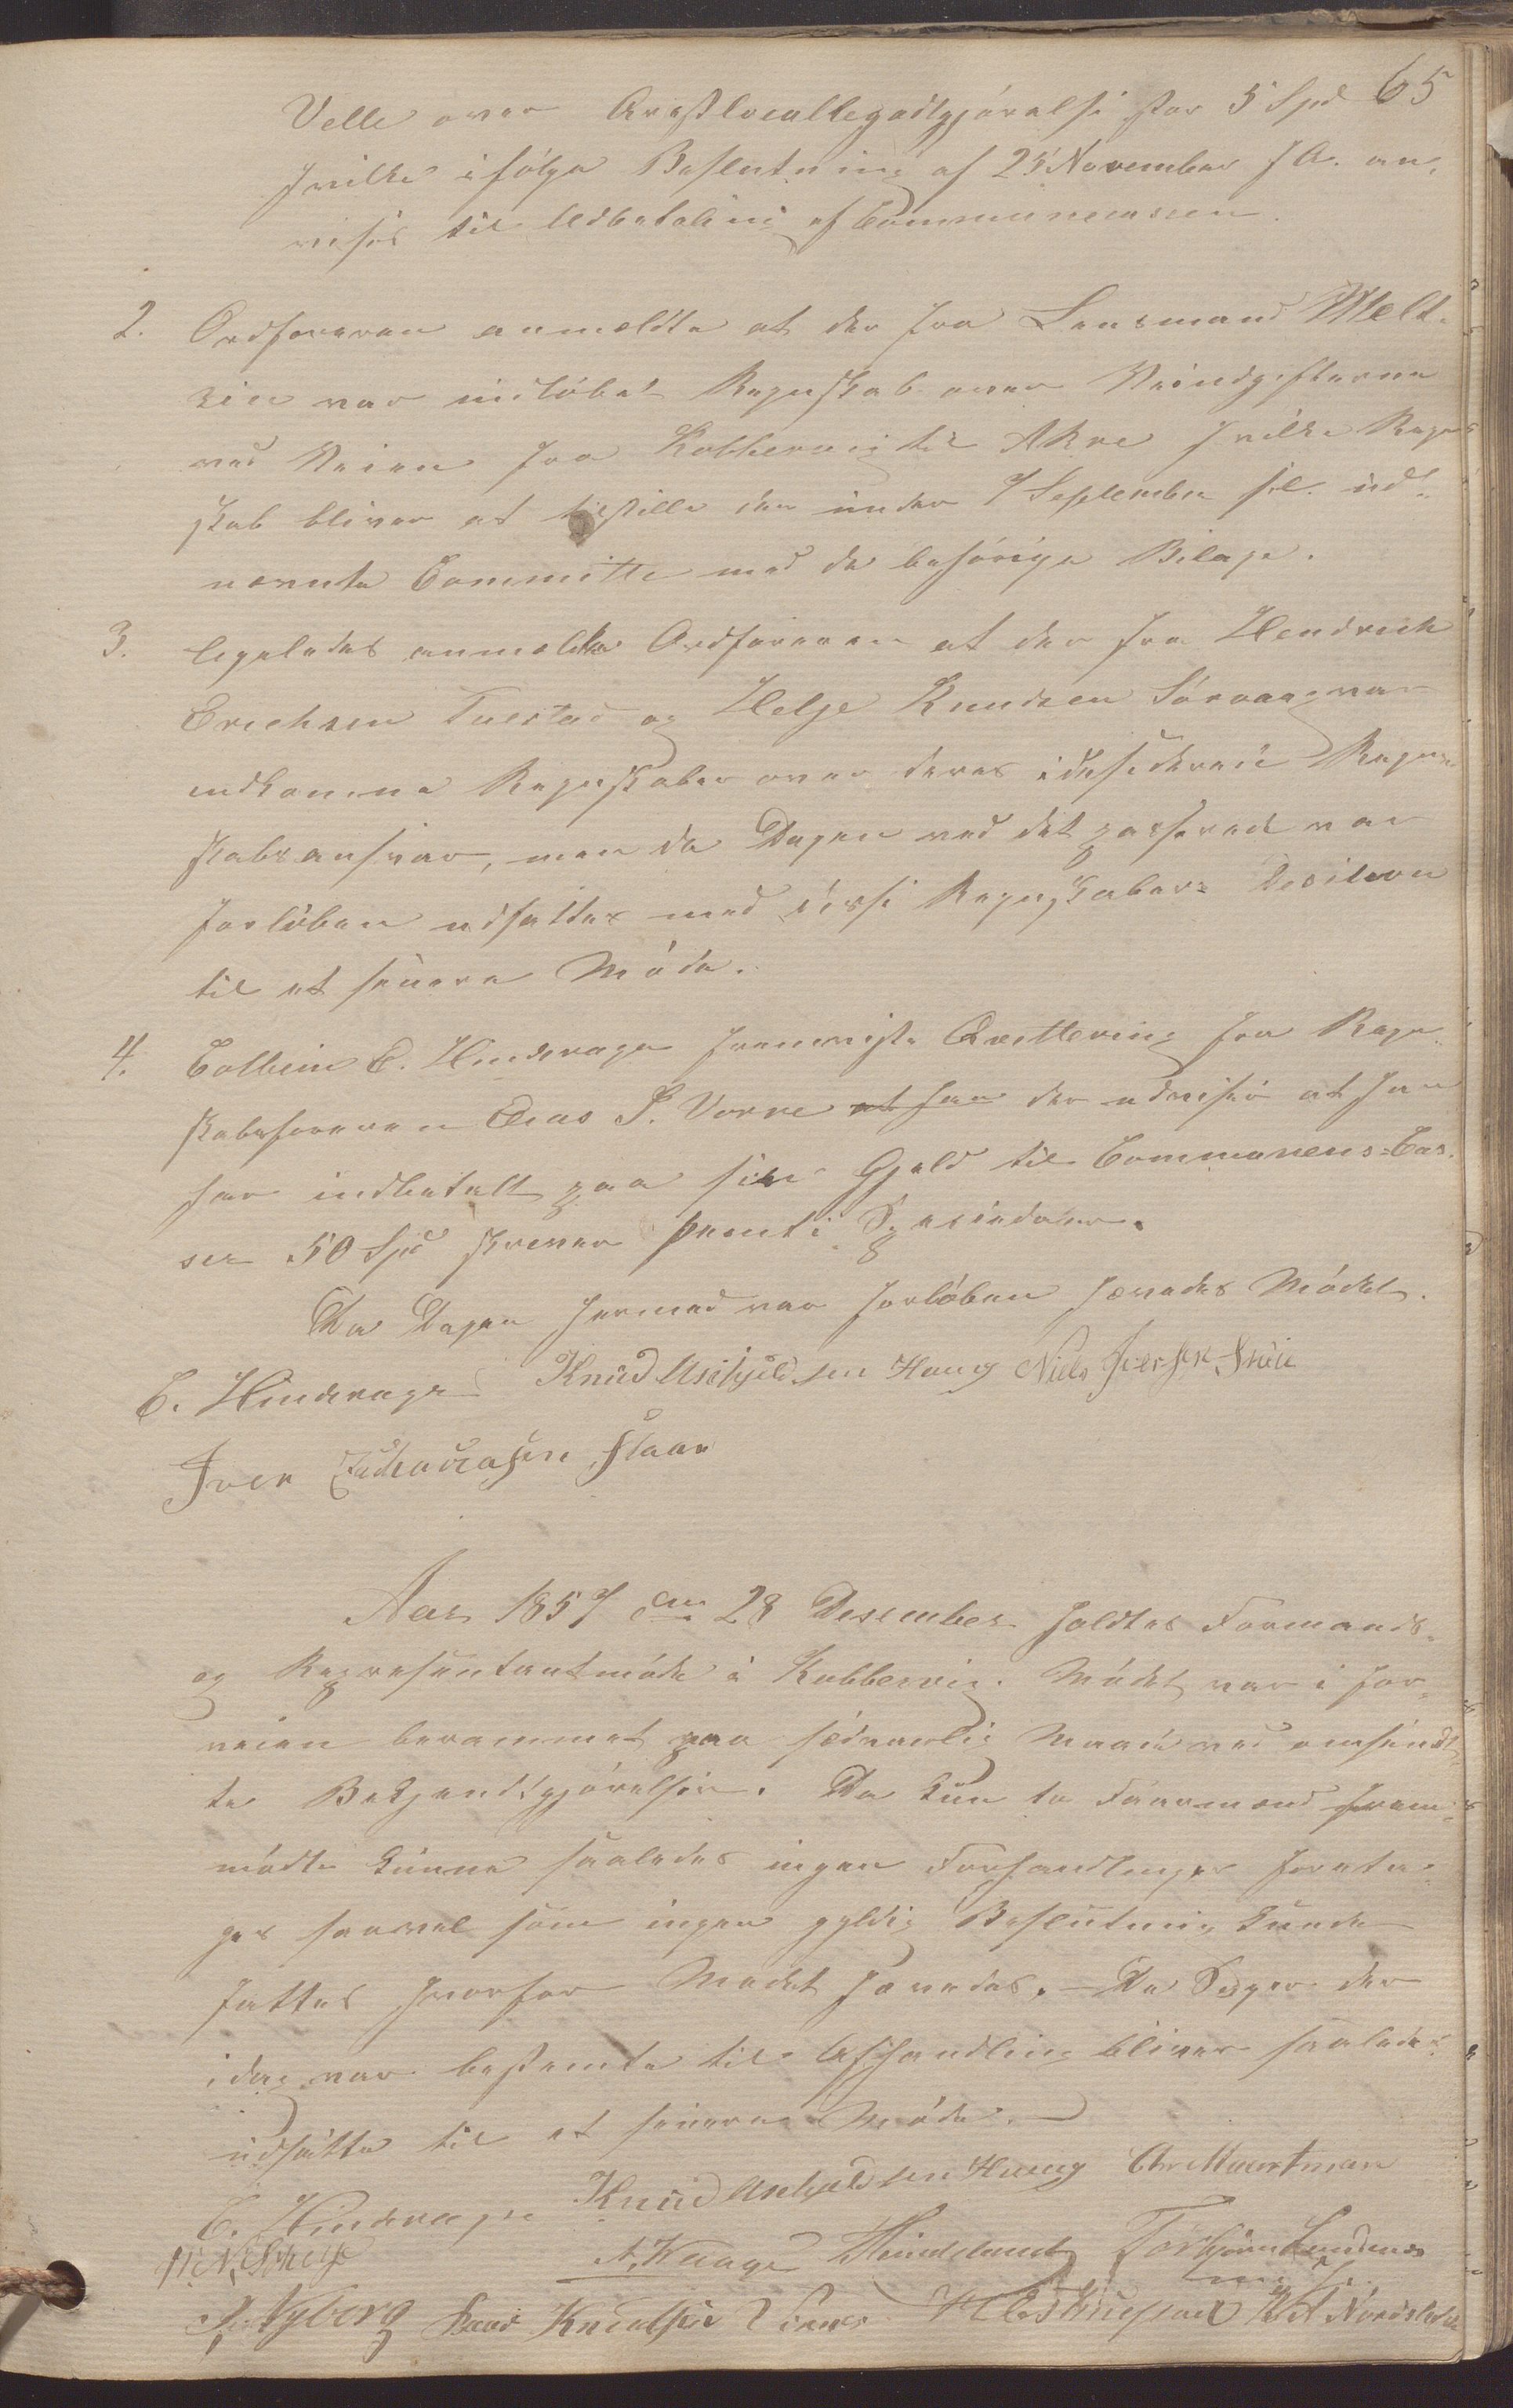 65
Velle over Arrestlocallegodtgjørelse stor 5 Spd
hvilke ifølge Beslutning af 25 November f A. an,
vises til Udbetaling af Communecassen.
2. Ordføreren anmeldte at der fra Lensmand Melt-
zin var indløbet Regnskab over Veiudgifterne
ved Veien fra Kobbervig til Akre hvilke Regn
skab bliver at tilstille den under 7 September f.A. ud-
nævnte Committe med de behørige Bilage.
3. ligeledes anmeldte Ordføreren at der fra Hendrich
Erichsen Tuestad og Helge Knudsen Sørvaag var
indkomne Regnskaber over deres Regn
skabsansvar, men da Dagen ved det passerede var
forløben udsattes med disse Regnskabers Decision
til et senere Møde.
4. Colbein E. Hinderager fremviste Qvittering fra Regn
skabsføreren Elias S. Vorre at han der udviser at han
har indbetalt paa sin Gjæld til Communens-Cas-
se 50 Spd skriver femti Speciedaler.
Da Dagen hermed var forløben hævedes Mødet.
C. Hinderager Knud Aschjeldsen Houg Niels Iversen
Iver
Aar 1857 den 28 Desember holdtes Formands-
og Representantmøde i Kobbervig. Mødet var i For-
veien berammet paa sædvanlig Maade ved omsendt
te Bekjendtgjørelser. Da kun to Formænd frem-
mødte kunne saaledes ingen Forhandlinger foreta-
ges saavel som ingen gyldig Beslutning kunde
fattes hvorfor Mødet hævedes. – De Sager der
idag var bestemte til Afhandling bliver saaledes
udsatte til et senere Møde. –
C. Hinderager Knud Aschjeldsen Houg Chr Maartman
A. Waage Torbjørn
A. Nyberg Knudsen